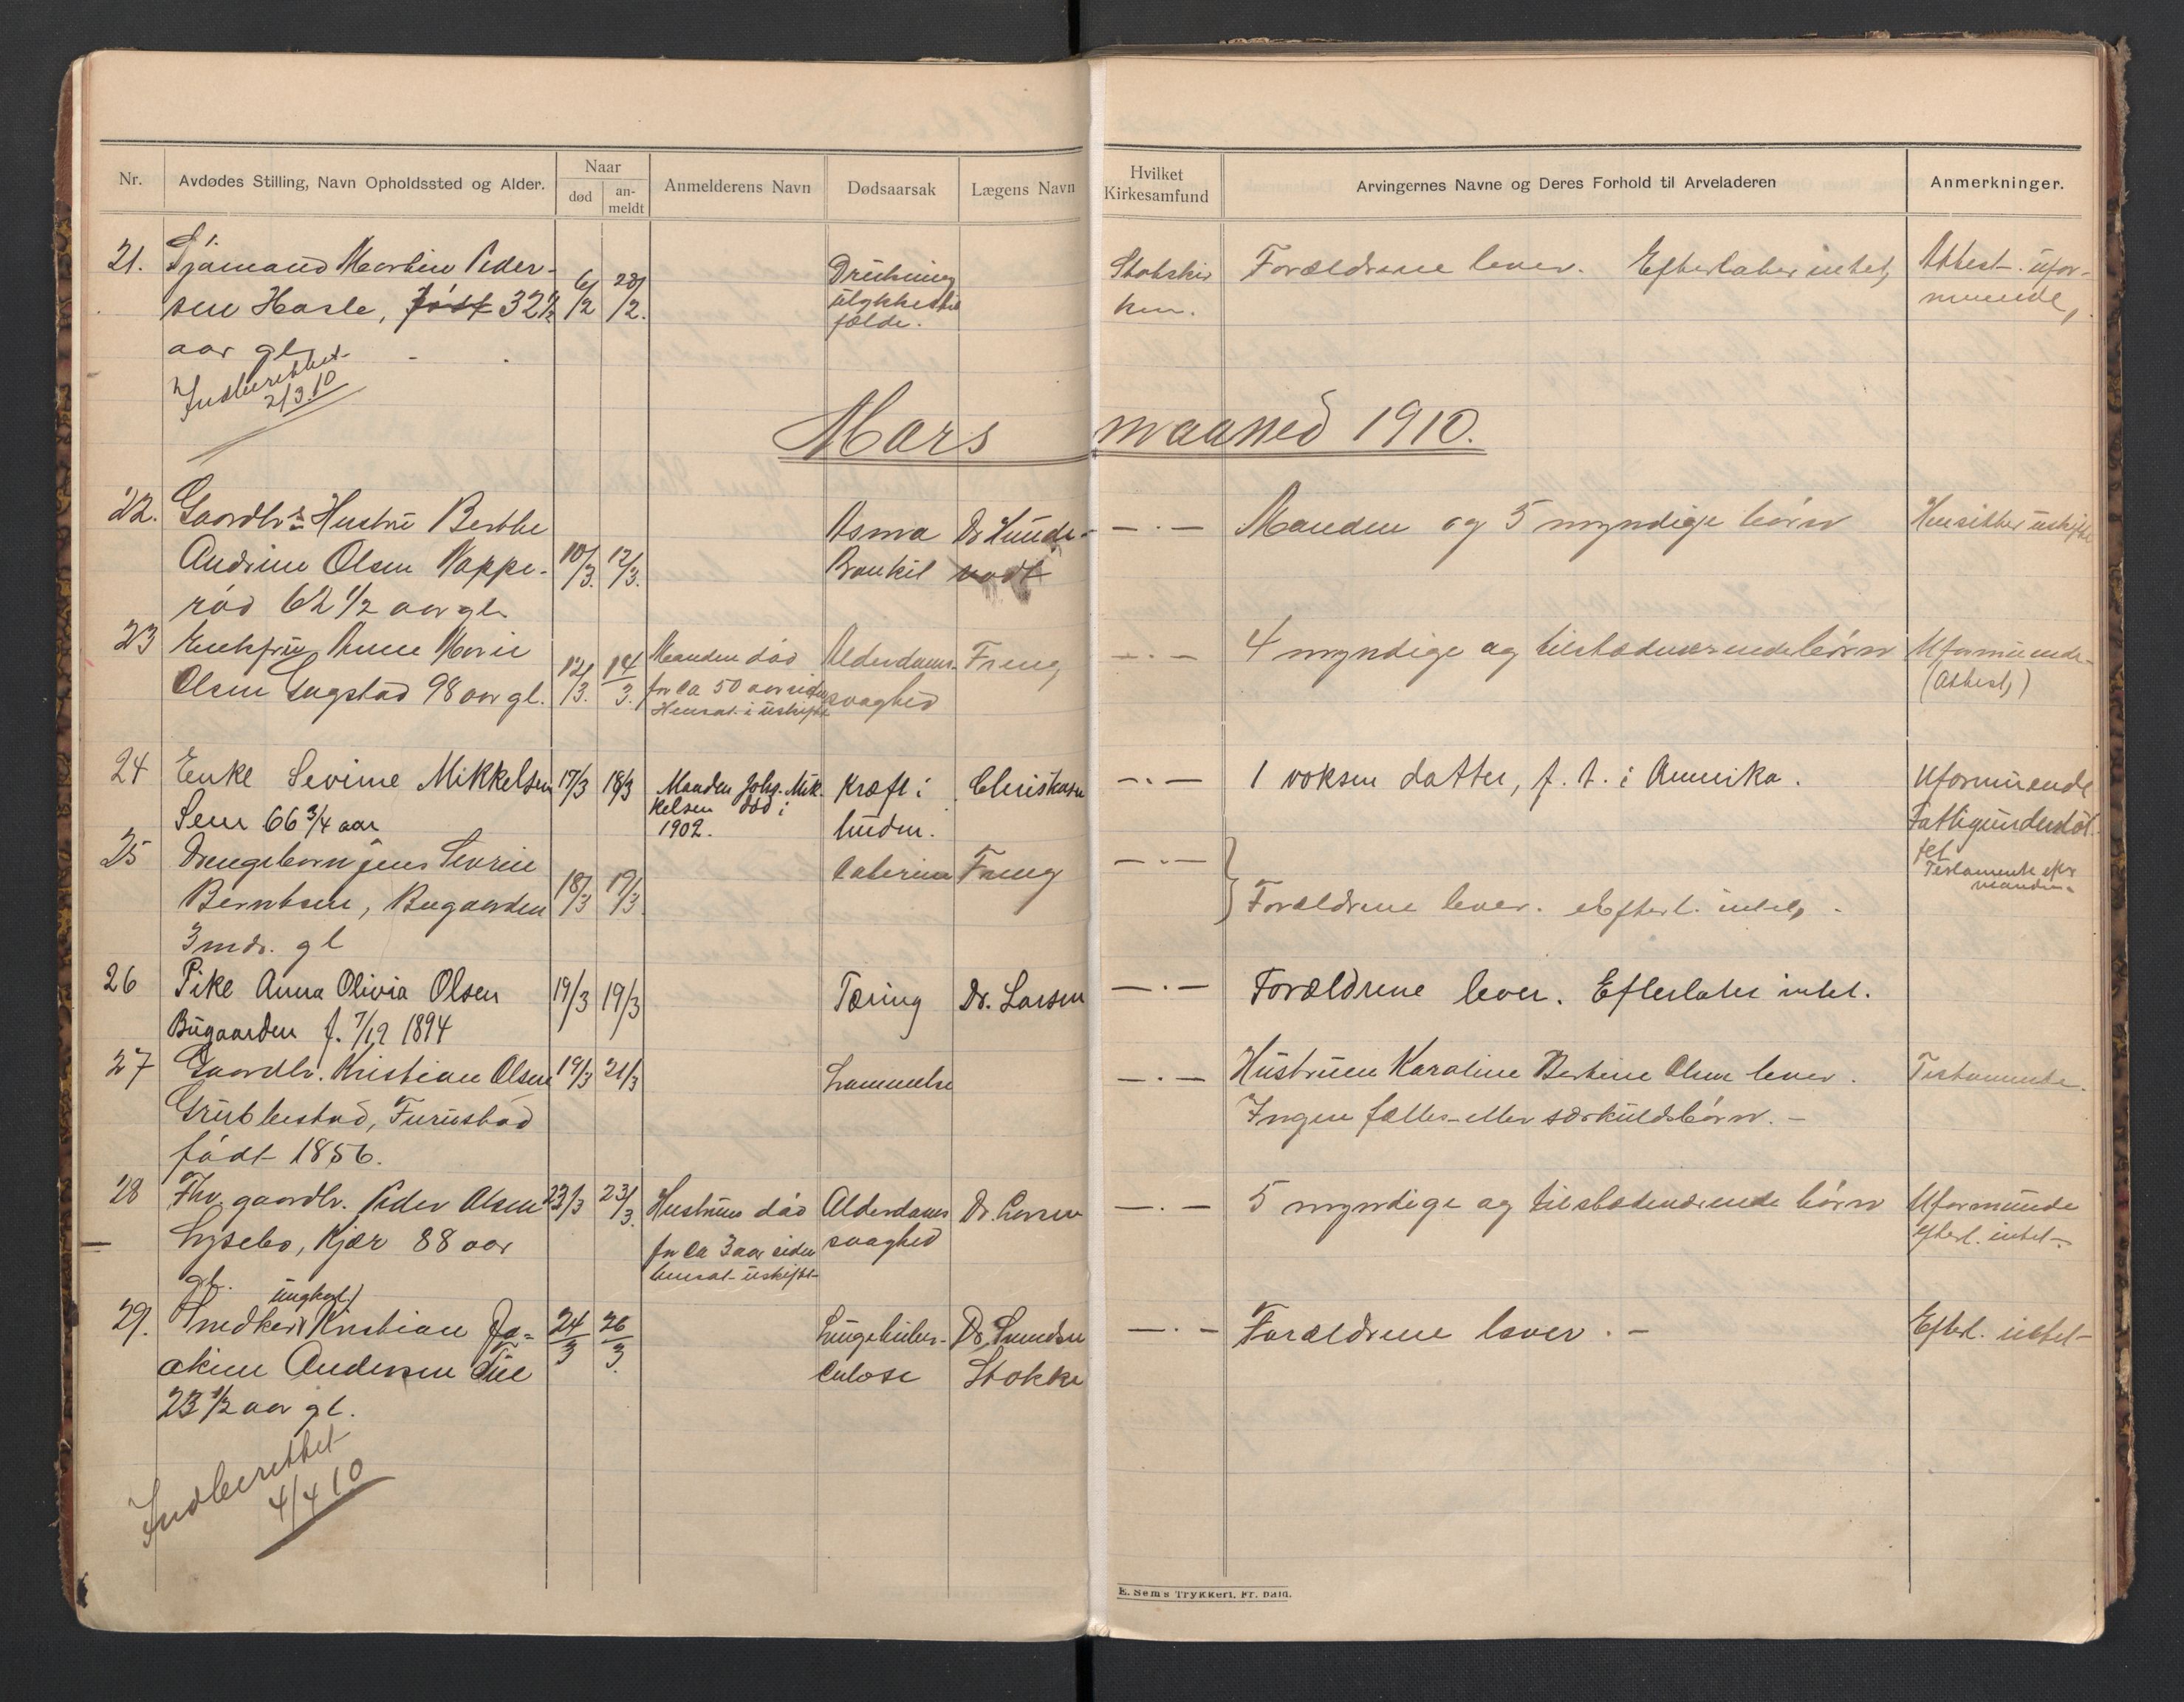 Nr.
Avdødes Stilling, Navn Opholdssted og Alder.
Naar
død
an-
meldt
Anmelderens Navn
Dødsaarsak
Lægens Navn
Hvilket
Kirkesamfund
Arvingernes Navne og Deres Forhold til Arveladeren
Anmerkninger.
21. Sjømand Martin Peder-
sen Hasle, født 32 1/2
aar gl.
6/2 28/2.
Drukning
ulykkestil
fælde.
Statskir
ken.
Forældrene lever. Efterlater intet,
Attest. ufor-
muende,
Indberettet
2/3.10
Mars maaned 1910.
22. Gaardbr.s Hustru Berthe
Andrine Olsen Nappe-
rød 62 1/2 aar gl.
10/3. 12/3.
Asma
Bronkit
Dr Hunde-
vadt
— . —
Manden og 5 myndige børn
Hensitter uskifte
23 Enkefru Anne Marie
Olsen Gugstad 98 aar gl.
12/3. 14/3.
Manden død
for ca 50 aar siden
Hensat. i uskifte
Alderdoms-
svaghed
Freng
— . —
4 myndige og tilstedeværende børn
Uformuende
(Attest,)
24 Enke Sevine Mikkelsen
Sem 66 3/4 aar
17/3 18/3
Manden Johs. Mik-
kelsen død i
1902.
Kræft i
huden.
Christasen
— . —
1 voksen datter, f. t. i Amerika.
Uformuende
Fattigunderstøt-
tet
Testamente efter
manden
25 Drengebarn Jens Severin
Berntsen, Bugaarden
3 mdr. gl
18/3 19/3.
Freng
— . —
Forældrene lever. Efterl. intet.
26 Pike Anna Olivia Olsen
Bugaarden f. 7/12 1894
19/3 19/3
Tæring
Dr. Larsen
— . —
Forældrene lever. Efterlater intet.
27 Gaardbr. Kristian Olsen
Grubbestad, Furustad
født 1856.
19/3 21/3
Lammelse
— . —
Hustruen Karoline Bertine Olsen lever.
Ingen fælles- eller særkuldsbørn. —
Testamente.
28 Fhv. gaardbr. Peder Olsen
Lysebo, Kjær 88 aar
gl.
23/3 23/3.
Hustruen død
for ca 3 aar siden
hensat uskifte
Alderdoms
svaghed
Dr. Larsen
— . —
5 myndige og tilstedeværende børn
Uformuende
efterl. intet
ungkarl
29. Snedker Kristian Jo-
akim Andersen Tue
23 1/2 aar gl.
24/3 26/3.
Lungetuber-
culose
Dr.
Stokke
— . —
Forældrene lever. —
Efterl. intet
Indberettet
4/4 10
E. Sem's Trykkeri, Fr.hald.